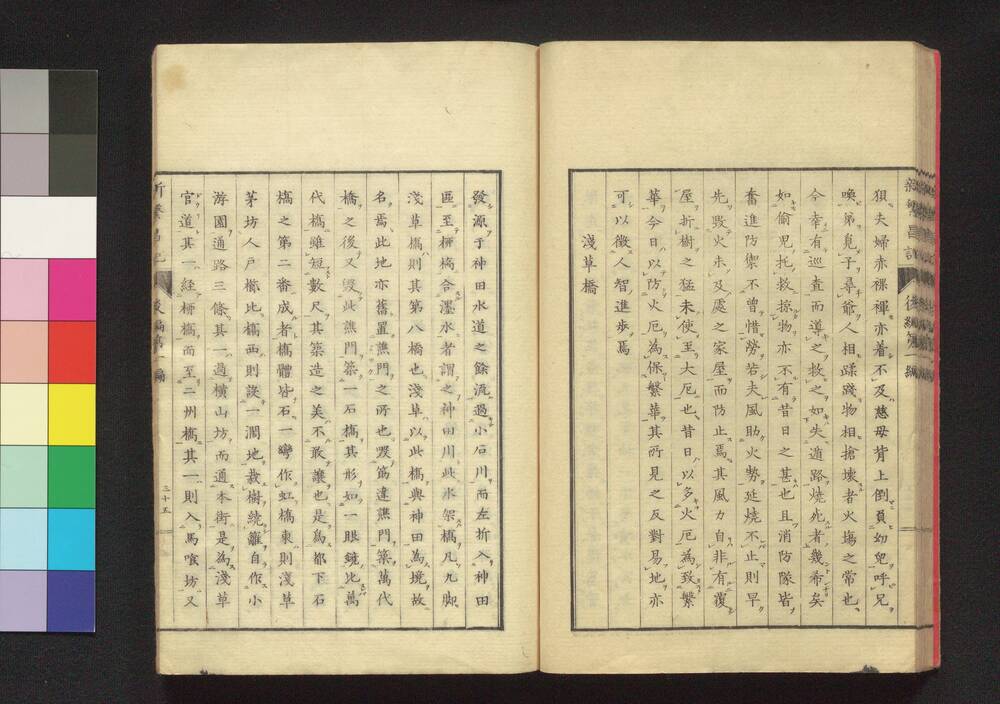 狽夫婦赤裸褌亦着不及慈母背上倒負幼兒呼兄
喚弟鬼子尋爺人相蹂踐物相搶壞者火場之常也
今幸有巡査而導之救之如失道路燒死者幾希矣
如偷兒托救掠物亦不有昔日之甚也且消防隊皆
奮進防禦不曾惜勞若夫風助火勢延燒不止則早
先毀火未及處之家屋而防止焉其風力自非有覆
屋折樹之猛未使至大厄也昔日以多火厄為致繁
華今日以防火厄為保繁華其所見之反對易地亦
可以徵人智進步焉
淺草橋
發源于神田水道之餘流過小石川而左折入神田
區至柳橋合濹水者謂之神田川此水架橋凡九脚
淺草橋則其第八橋也淺草以此橋與神田為境故
名焉此地亦舊置譙門之所也毀筋違譙門築萬代
橋之後又毀此譙門築一石橋其形如一眼鏡比萬
代橋雖短數尺其築造之美不敢讓也是為都下石
橋之第二番成者橋體皆石一彎作虹橋東則淺草
茅坊人戶櫛比橋西則設一濶地栽樹繞籬自作小
游園通路三條其一過橫山坊而通本街是為淺草
官道其一經柳橋而至二州橋其一則入馬喰坊又
後編第一編
三十五